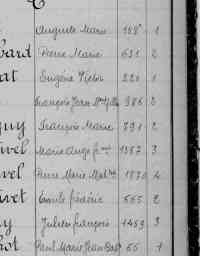 Auguste Marie 158 1
bard Pierre Marie 631 2
at Eugène Victor 220 1
François Jean 386 2
uy François Marie 791 2
ivel Marie Ange 1357 3
vel Pierre Marie 1870 4
ivet Emile Frédéric 665 2
y Julien François 1459 3
hot Paul Marie Jean 66 1